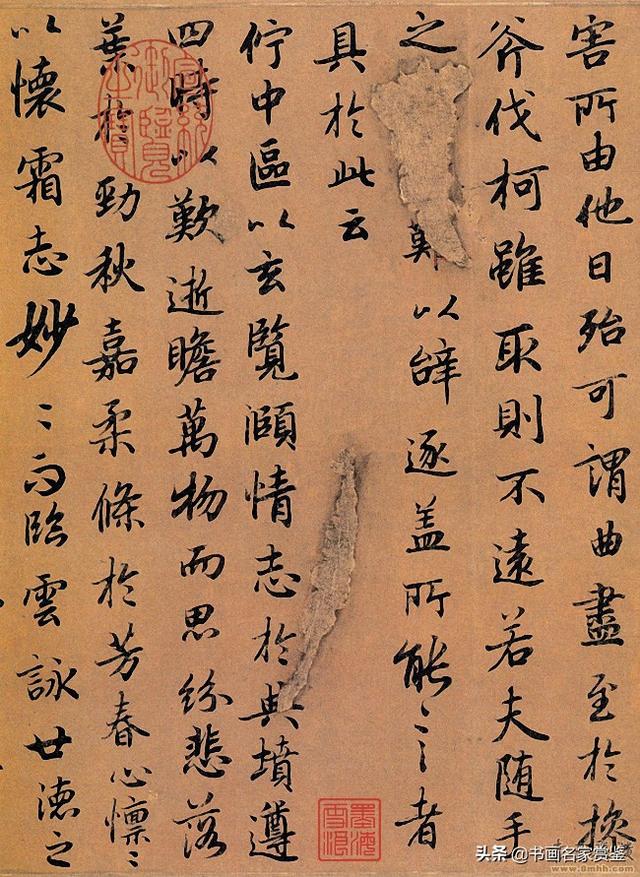 害所由他日殆可謂曲盡至於操
斧伐柯雖取則不遠若夫随手
之 以辝逐盖所能言者
具於此云
佇中區以玄覽頤情志於典墳遵
四時以歎逝瞻萬物而思紛悲落
葉於勁秋嘉柔條於芳春心懍〻
以懷霜志妙〻而臨雲詠世徳之
宣統御覽之寶
头条 @书画名家赏鉴
www.8mhh.com